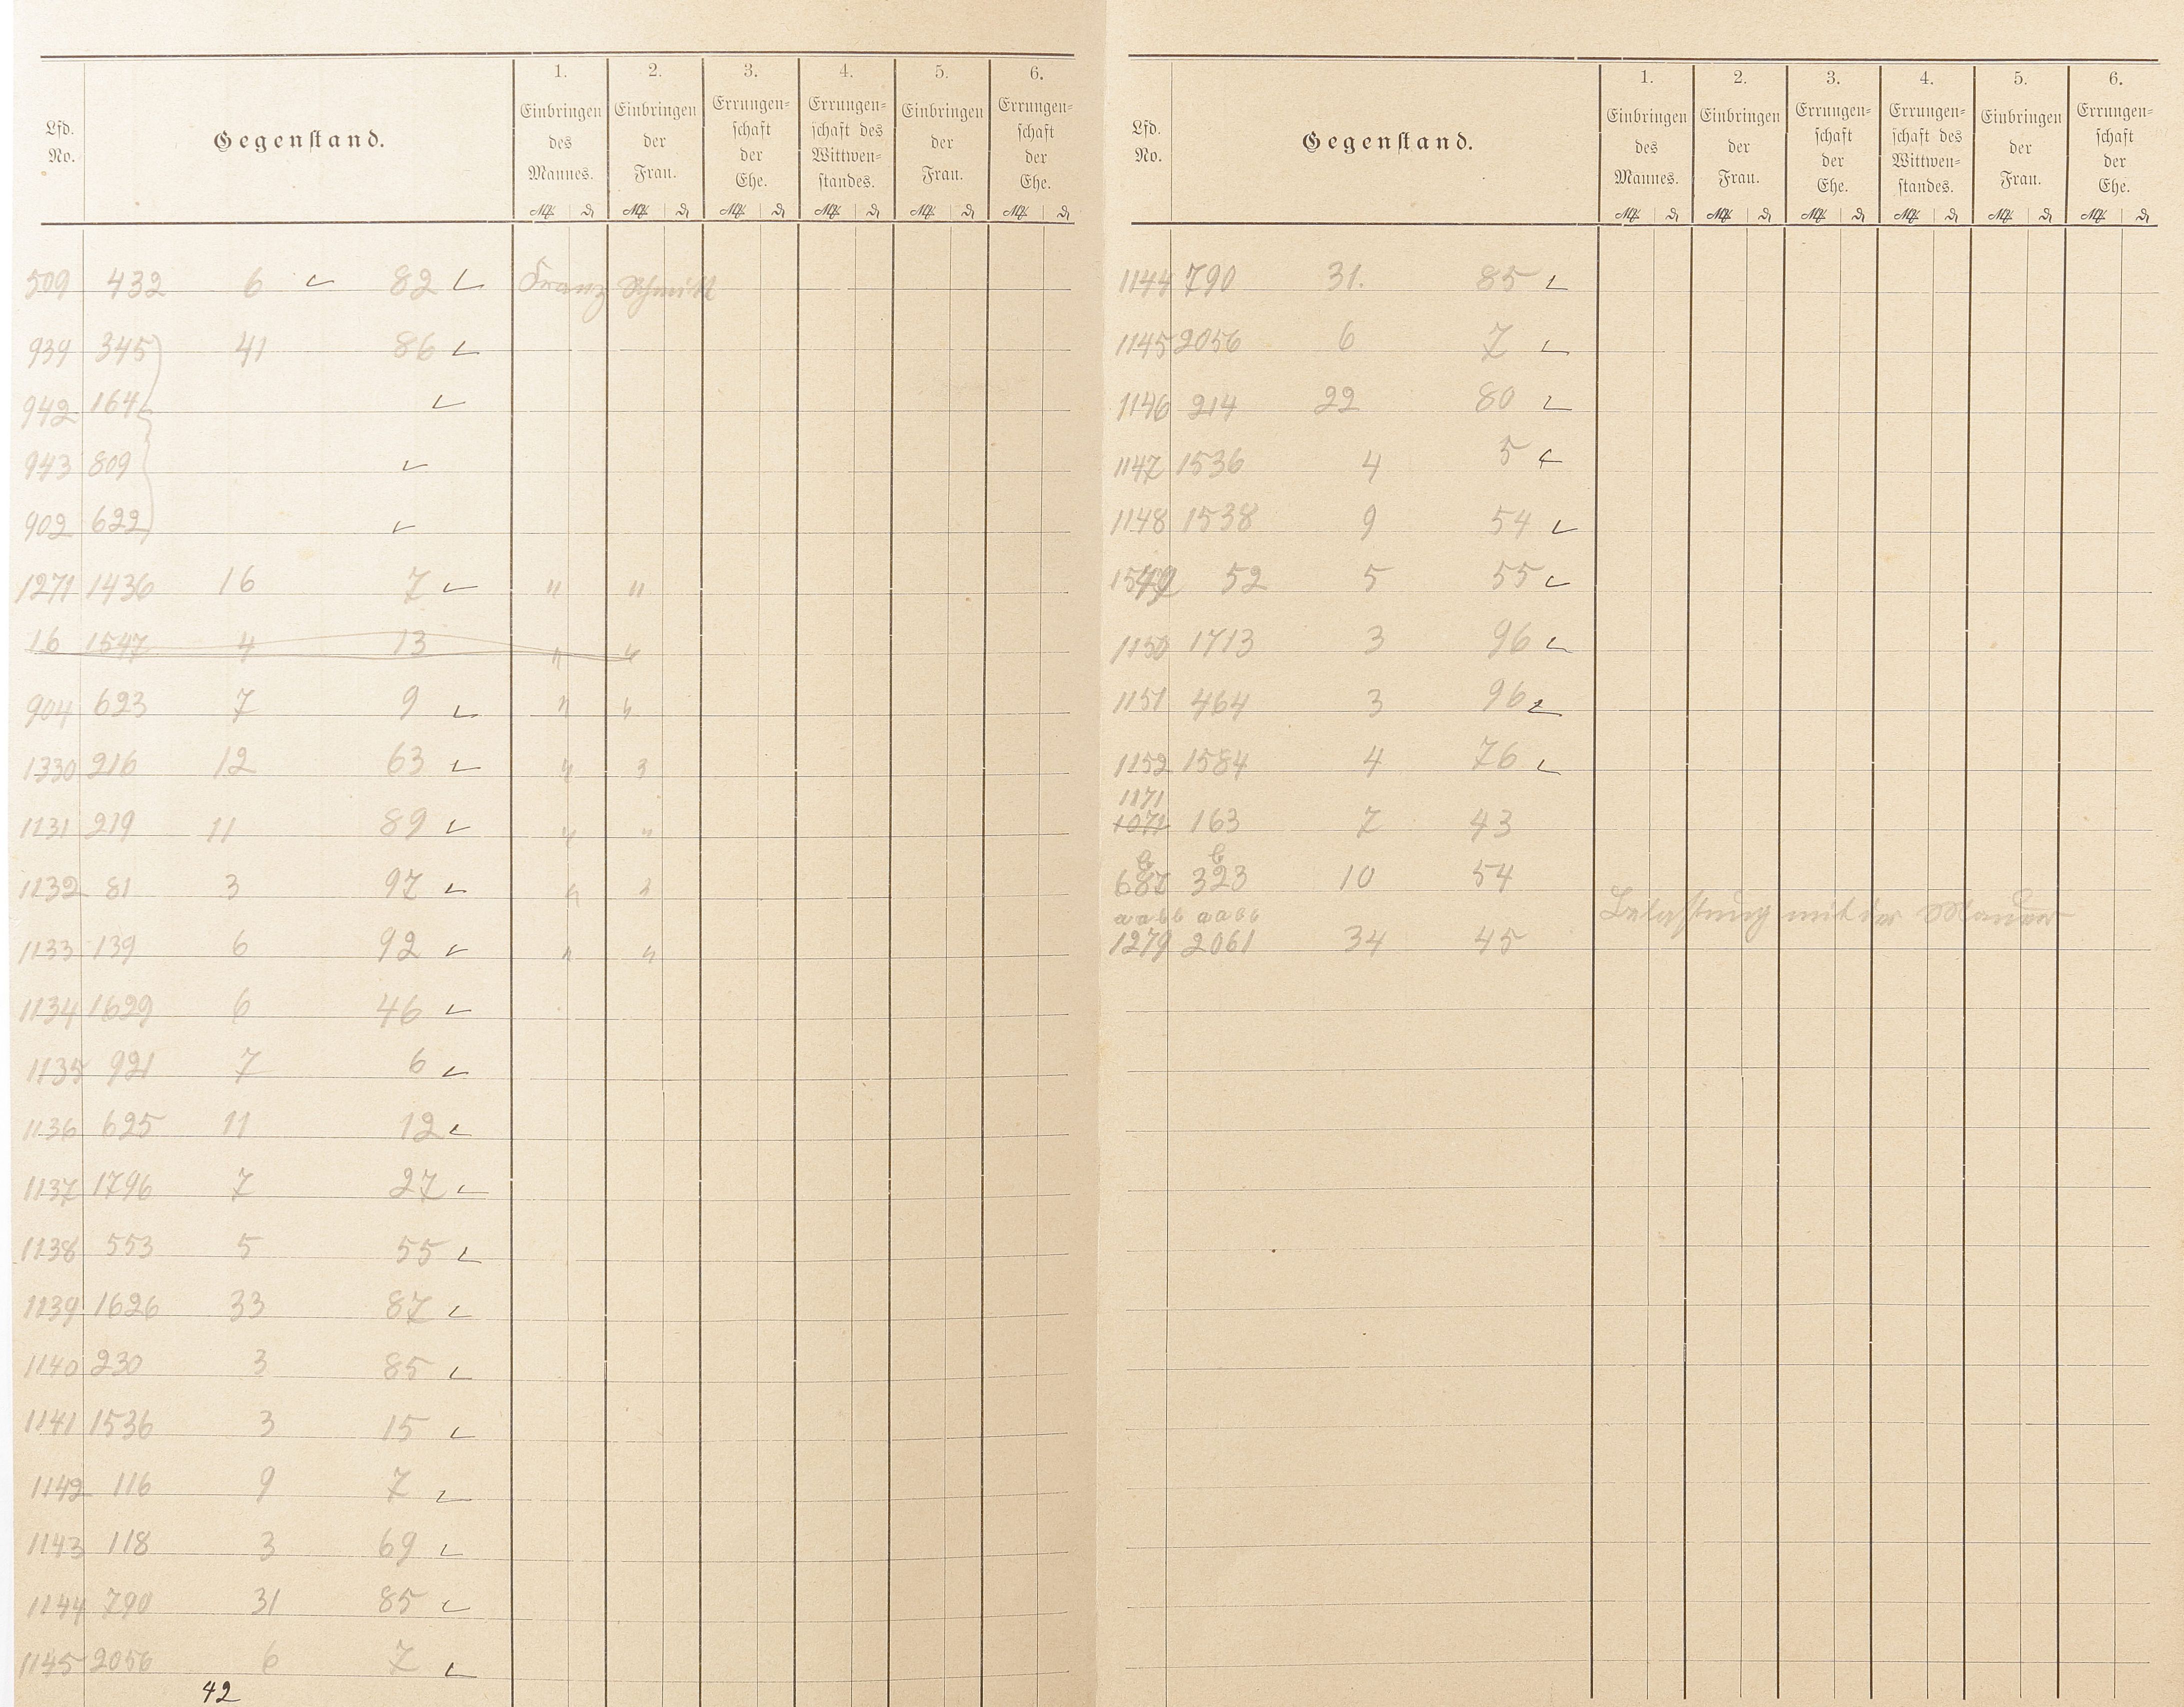 Lfd. No. Gegenstand. 1. Einbringen des Mannes. 2. Einbringen der Frau. 3. Errungen=schaft der Ehe. 4. Errungen=schaft des Wittwen=standes. 5. Einbringen der Frau. 6. Errungen=schaft der Ehe.
ℳ ₰ ℳ ₰ ℳ ₰ ℳ ₰ ℳ ₰ ℳ ₰
509 432 6 ✓ 82 ✓ Franz Schmitt
939 345 41 86 ✓
942 164 ✓
943 809 ✓
902 622 ✓
1271 1436 16 7 ✓ " "
16 1547 4 13 " "
904 623 7 9 ✓ " "
1330 216 12 63 ✓ " "
1131 219 11 89 ✓ " "
1132 81 3 97 ✓ " "
1133 139 6 92 ✓ " "
1134 1629 6 46 ✓
1135 921 7 6 ✓
1136 625 11 12 ✓
1137 1796 7 27 ✓
1138 553 5 55 ✓
1139 1626 33 87 ✓
1140 230 3 85 ✓
1141 1536 3 15 ✓
1142 116 9 7 ✓
1143 118 3 69 ✓
1144 790 31 85 ✓
1145 2056 6 7 ✓
42
Lfd. No. Gegenstand. 1. Einbringen des Mannes. 2. Einbringen der Frau. 3. Errungen=schaft der Ehe. 4. Errungen=schaft des Wittwen=standes. 5. Einbringen der Frau. 6. Errungen=schaft der Ehe.
ℳ ₰ ℳ ₰ ℳ ₰ ℳ ₰ ℳ ₰ ℳ ₰
1144 790 31. 85 ✓
1145 2056 6 7 ✓
1146 214 22 80 ✓
1147 1536 4 5 ✓
1148 1538 9 54 ✓
52 5 55 ✓
1150 1713 3 96 ✓
1151 464 3 96 ✓
1152 1584 4 76 ✓
1171
1071 163 7 43
b b
687 323 10 54
aabb aabb Belastung mit der Mauer
1279 2061 34 45